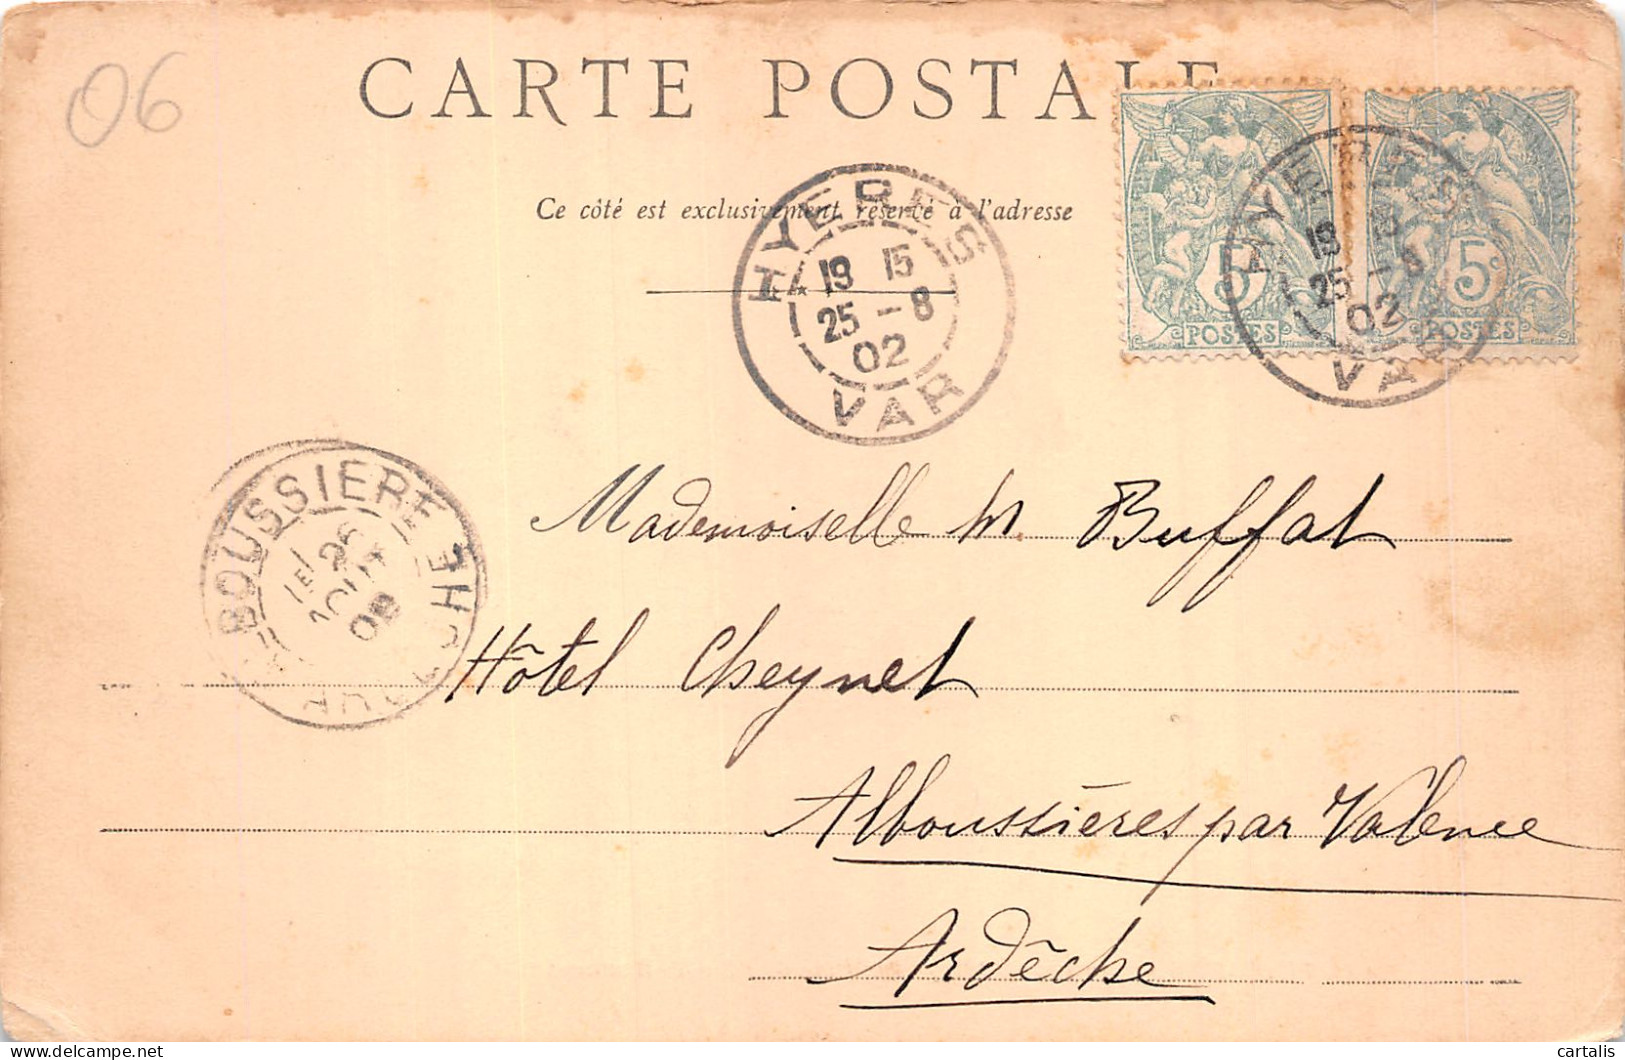 06
CARTE POSTALE
Ce côté est exclusivement réservé à l'adresse
HYERES
19 15
25 - 8
02
VAR
HYERES
19 15
25 - 8
02
VAR
5
POSTES
5c
POSTES
BOUSSIERE
26
AOUT
Mademoiselle M. Buffat
Hôtel Cheynet
Alboussières par Valence
Ardêche
delcampe.net
cartalis